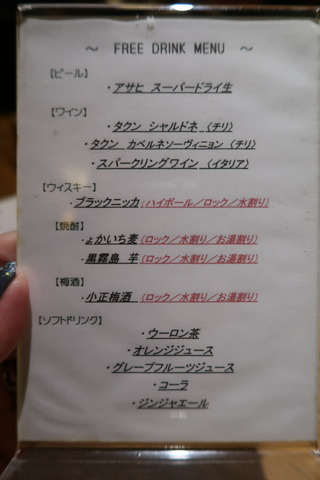 ～ FREE DRINK MENU ～
【ビール】
・アサヒ スーパードライ生
【ワイン】
・タクン シャルドネ （チリ）
・タクン カベルネソーヴィニョン （チリ）
・スパークリングワイン （イタリア）
【ウィスキー】
・ブラックニッカ（ハイボール／ロック／水割り）
【焼酎】
・よかいち麦 （ロック／水割り／お湯割り）
・黒霧島 芋 （ロック／水割り／お湯割り）
【梅酒】
・小正梅酒 （ロック／水割り／お湯割り）
【ソフトドリンク】
・ウーロン茶
・オレンジジュース
・グレープフルーツジュース
・コーラ
・ジンジャエール